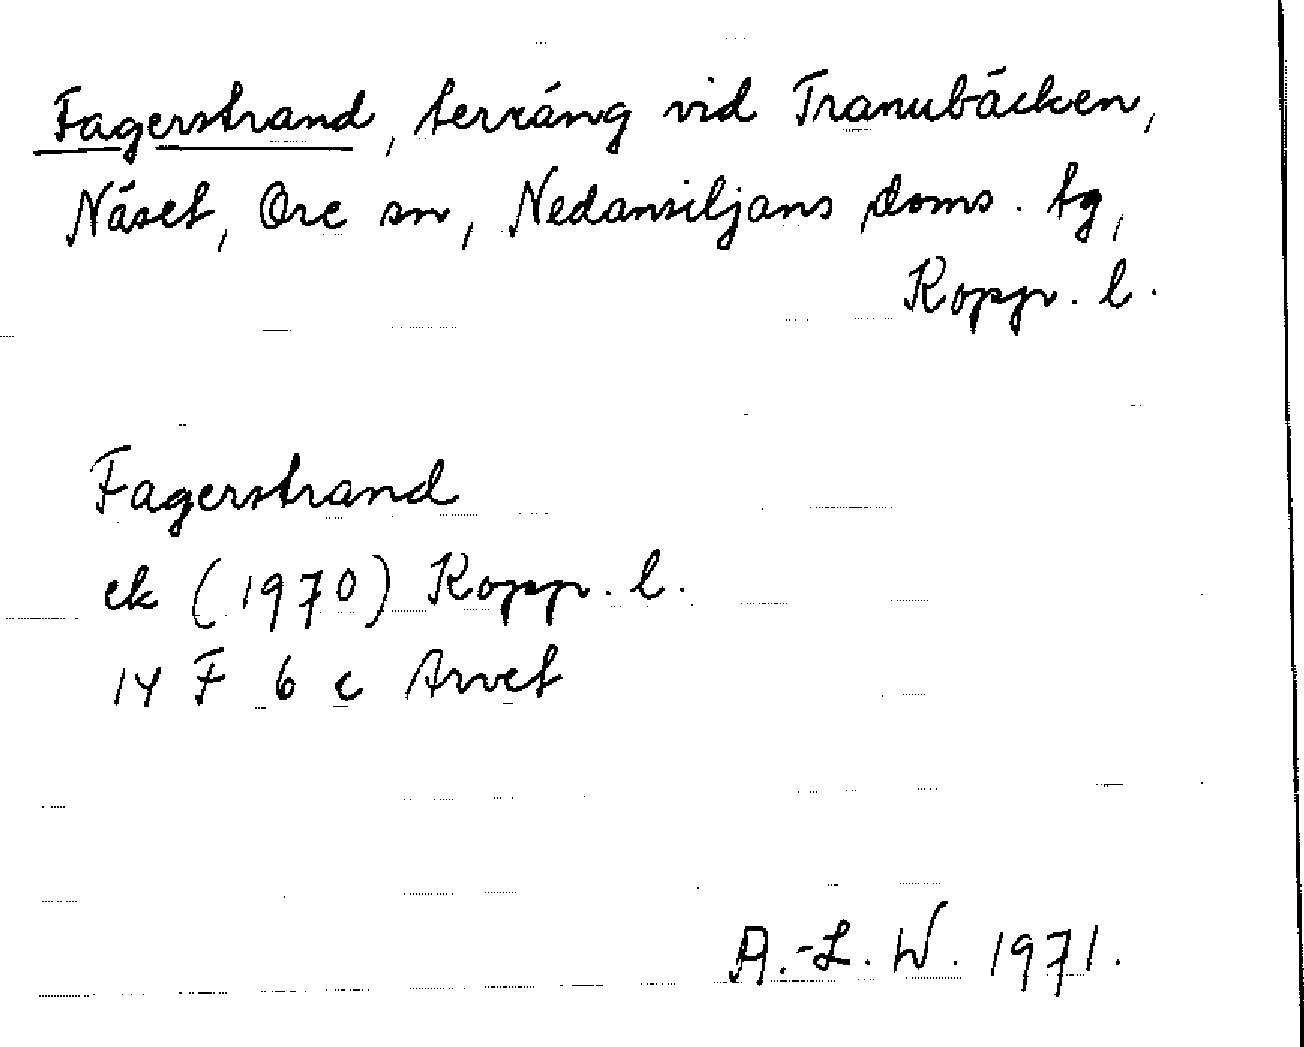 Fagerstrand, terräng vid Tranubäcken,
Näset, Ore sn, Nedansiljans doms. tg,
Kopp. l.
Fagerstrand
ek (1970) Kopp. l.
14 F 6 c Arvet
A.-L. W. 1971.